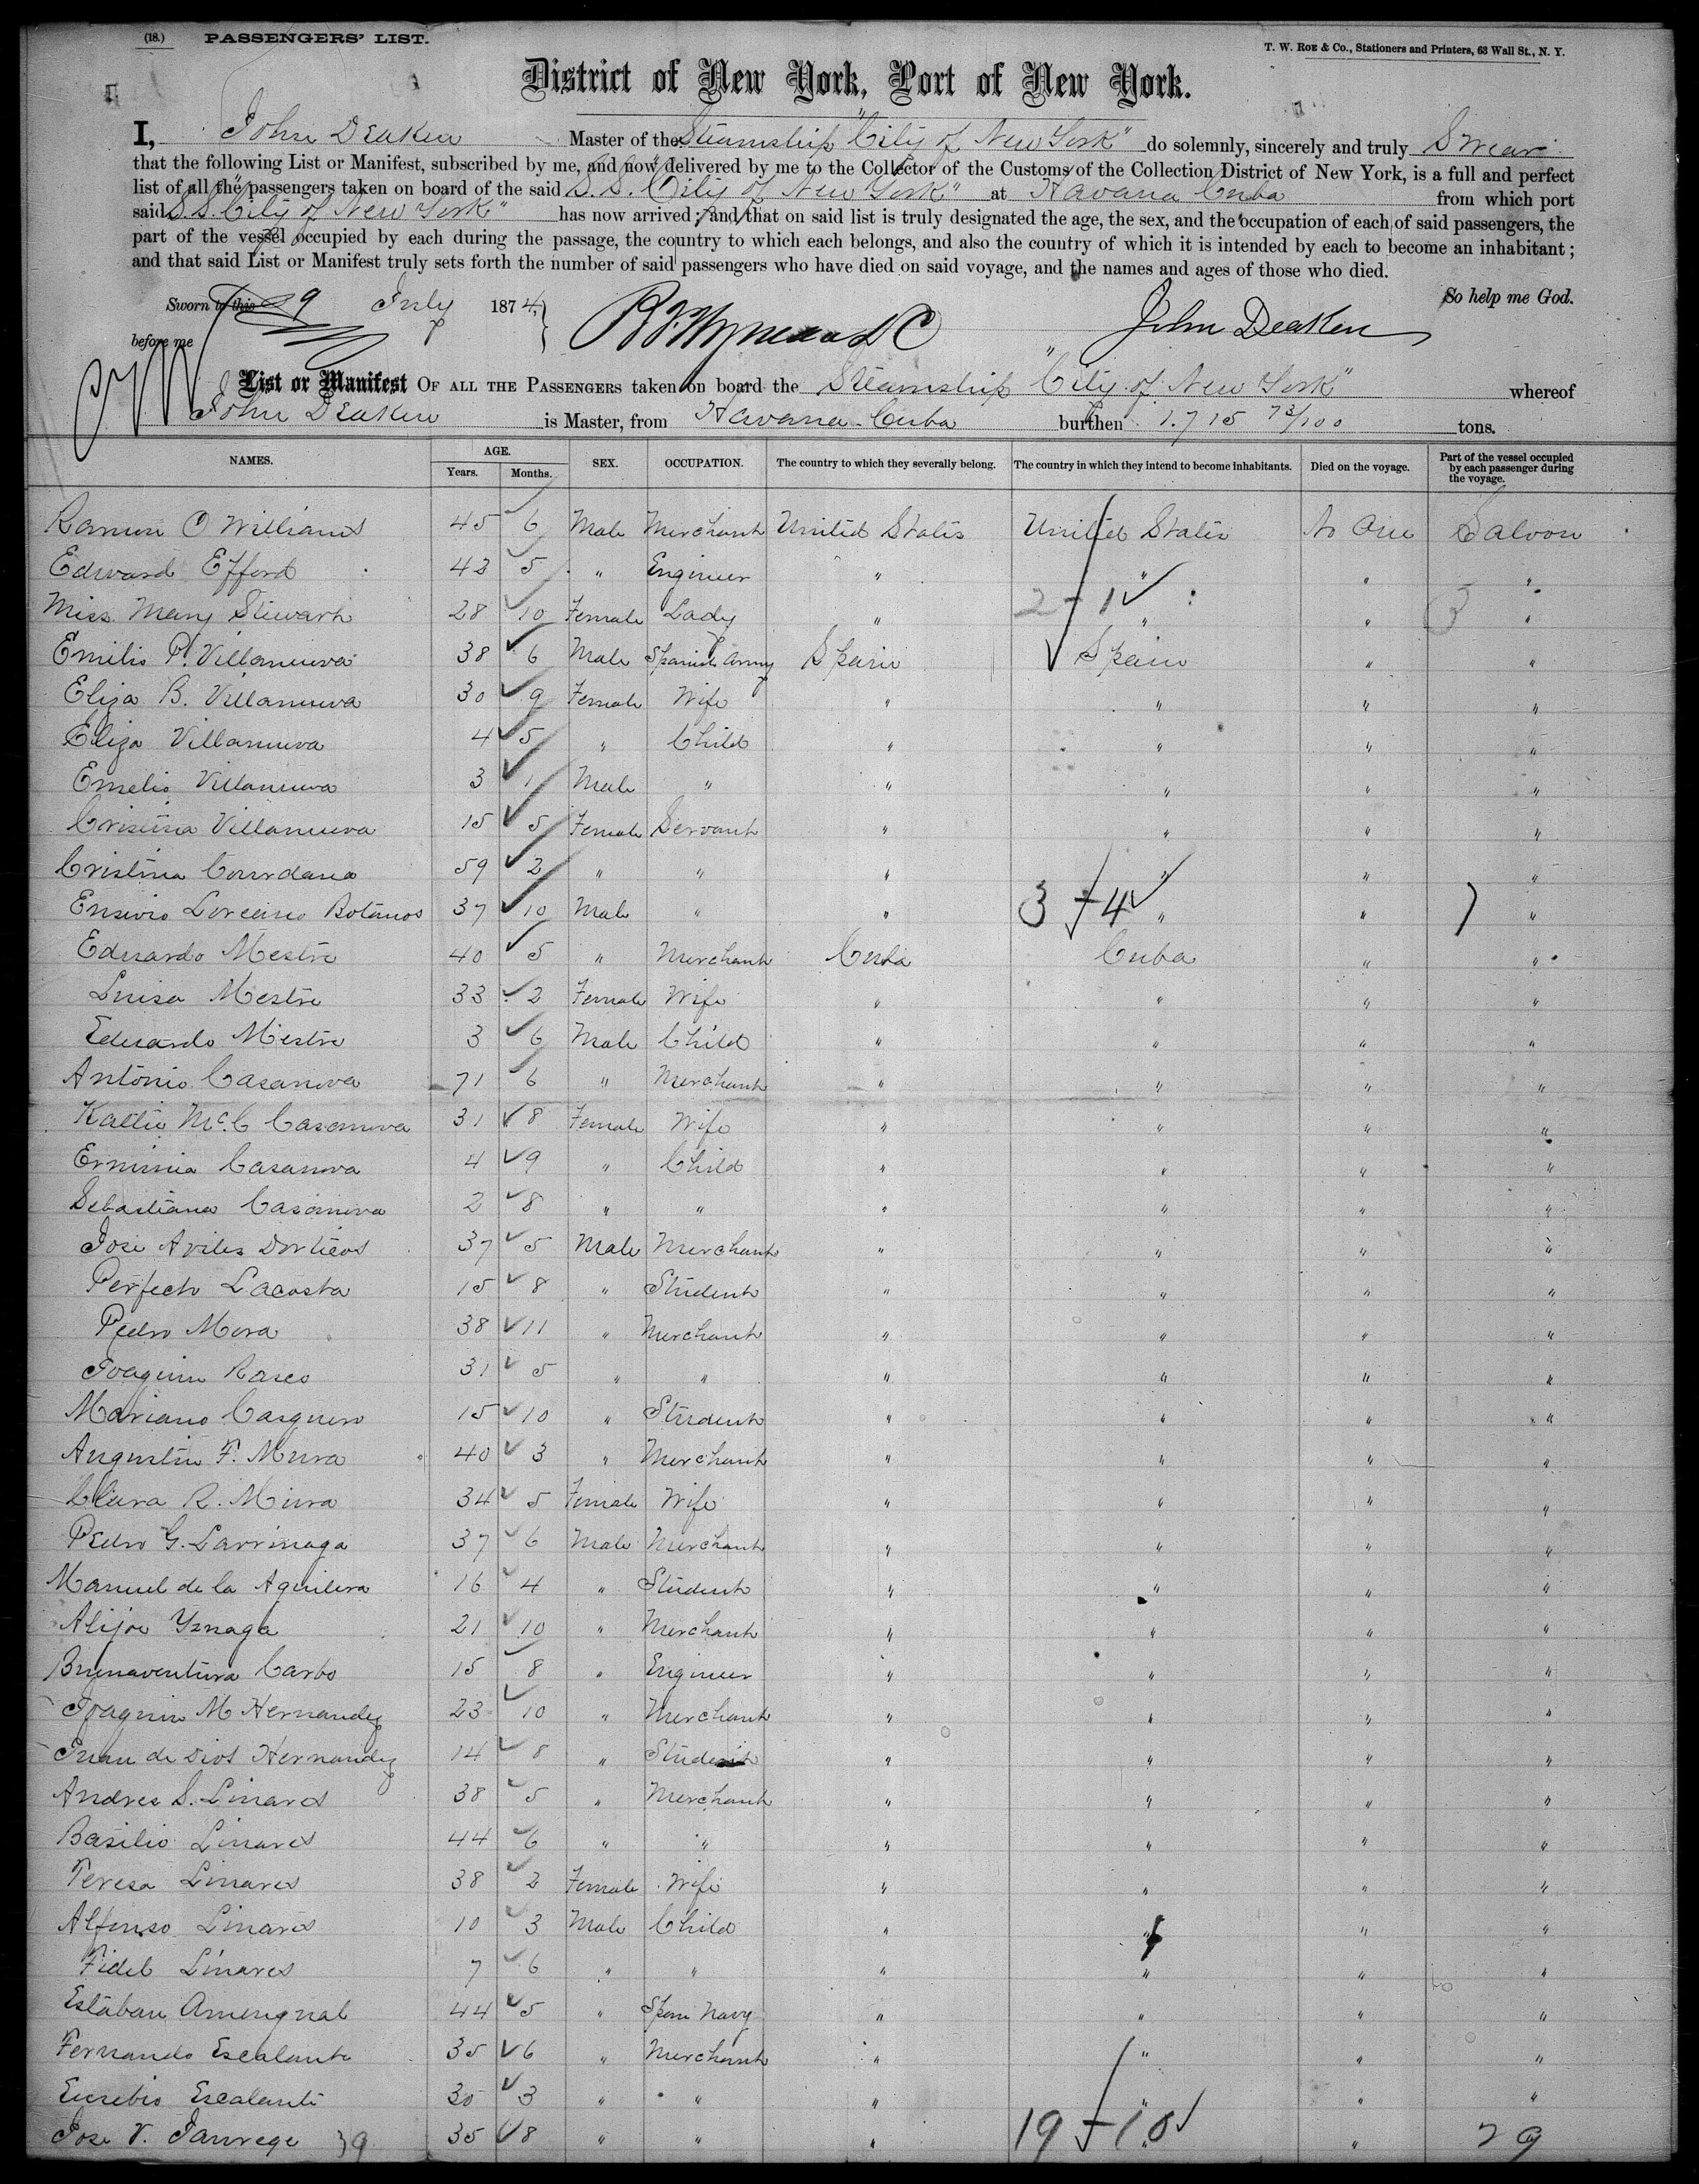 (18.) PASSENGERS' LIST.
T. W. ROE & Co., Stationers and Printers, 63 Wall St., N. Y.
District of New York, Port of New York.
I, John Deaken Master of the Steamship "City of New York" do solemnly, sincerely and truly Swear
that the following List or Manifest, subscribed by me, and now delivered by me to the Collector of the Customs of the Collection District of New York, is a full and perfect
list of all the passengers taken on board of the said S.S. "City of New York" at Havana Cuba from which port
said S.S. "City of New York" has now arrived; and that on said list is truly designated the age, the sex, and the occupation of each of said passengers, the
part of the vessel occupied by each during the passage, the country to which each belongs, and also the country of which it is intended by each to become an inhabitant;
and that said List or Manifest truly sets forth the number of said passengers who have died on said voyage, and the names and ages of those who died.
So help me God.
Sworn to this 9 July 1874,
before me
John Deaken
List or Manifest OF ALL THE PASSENGERS taken on board the Steamship "City of New York" whereof
John Deaken is Master, from Havana Cuba burthen 1.715 73/100 tons.
NAMES. AGE. Years. Months. SEX. OCCUPATION. The country to which they severally belong. The country in which they intend to become inhabitants. Died on the voyage. Part of the vessel occupied by each passenger during the voyage.
Ramon O Williams 45 6 Male Merchant United States United States No One Saloon
Edward Efford 43 5 " Engineer " " " "
Miss Mary Stewart 28 10 Female Lady " 2 - 1 " " 3 "
Emilio P. Villanueva 38 6 Male Spanish Army Spain Spain " "
Eliza B. Villanueva 30 9 Female Wife " " " "
Eliza Villanueva 4 5 " Child " " " "
Emelio Villanueva 3 1 Male " " " " "
Cristina Villanueva 15 5 Female Servant " " " "
Cristina 59 2 " " " " " "
Botanos 37 10 Male " " 3 - 4 " " 7 "
Eduardo Mestre 40 5 " Merchant Cuba Cuba " "
Luisa Mestre 33 2 Female Wife " " " "
Eduardo Mestre 3 6 Male Child " " " "
Antonio Casanova 71 6 " Merchant " " " "
Kattie McC Casanova 31 8 Female Wife " " " "
Erminia Casanova 4 9 " Child " " " "
Sebastiana Casanova 2 8 " " " " " "
Jose Aviles Dorticos 37 5 Male Merchant " " " "
Perfecto Lacosta 15 8 " Student " " " "
Pedro Mora 38 11 " Merchant " " " "
Joaquin Rasco 31 5 " " " " " "
Mariano Casquero 15 10 " Student " " " "
Augustin F. Mura 40 3 " Merchant " " " "
Clara R. Mura 34 5 Female Wife " " " "
Pedro G. Larrinaga 37 6 Male Merchant " " " "
Manuel de la Aguilera 16 4 " Student " " " "
Alijoe Yznaga 21 10 " Merchant " " " "
Buenaventura Carbo 15 8 " Engineer " " " "
Joaquin M Hernandez 23 10 " Merchant " " " "
Juan de Dios Hernandez 14 8 " Student " " " "
Andres S. Linares 38 5 " Merchant " " " "
Basilio Linares 44 6 " " " " " "
Teresa Linares 38 2 Female Wife " " " "
Alfonso Linares 10 3 Male Child " " " "
Fidel Linares 7 6 " " " " " "
Estaban Amengual 44 5 " Span Navy " " " "
Fernando Escalante 35 6 " Merchant " " " "
Eusebio Escalanti 30 3 " " " " " "
Jose V. 39 35 8 " " " 19 - 10 " " 29